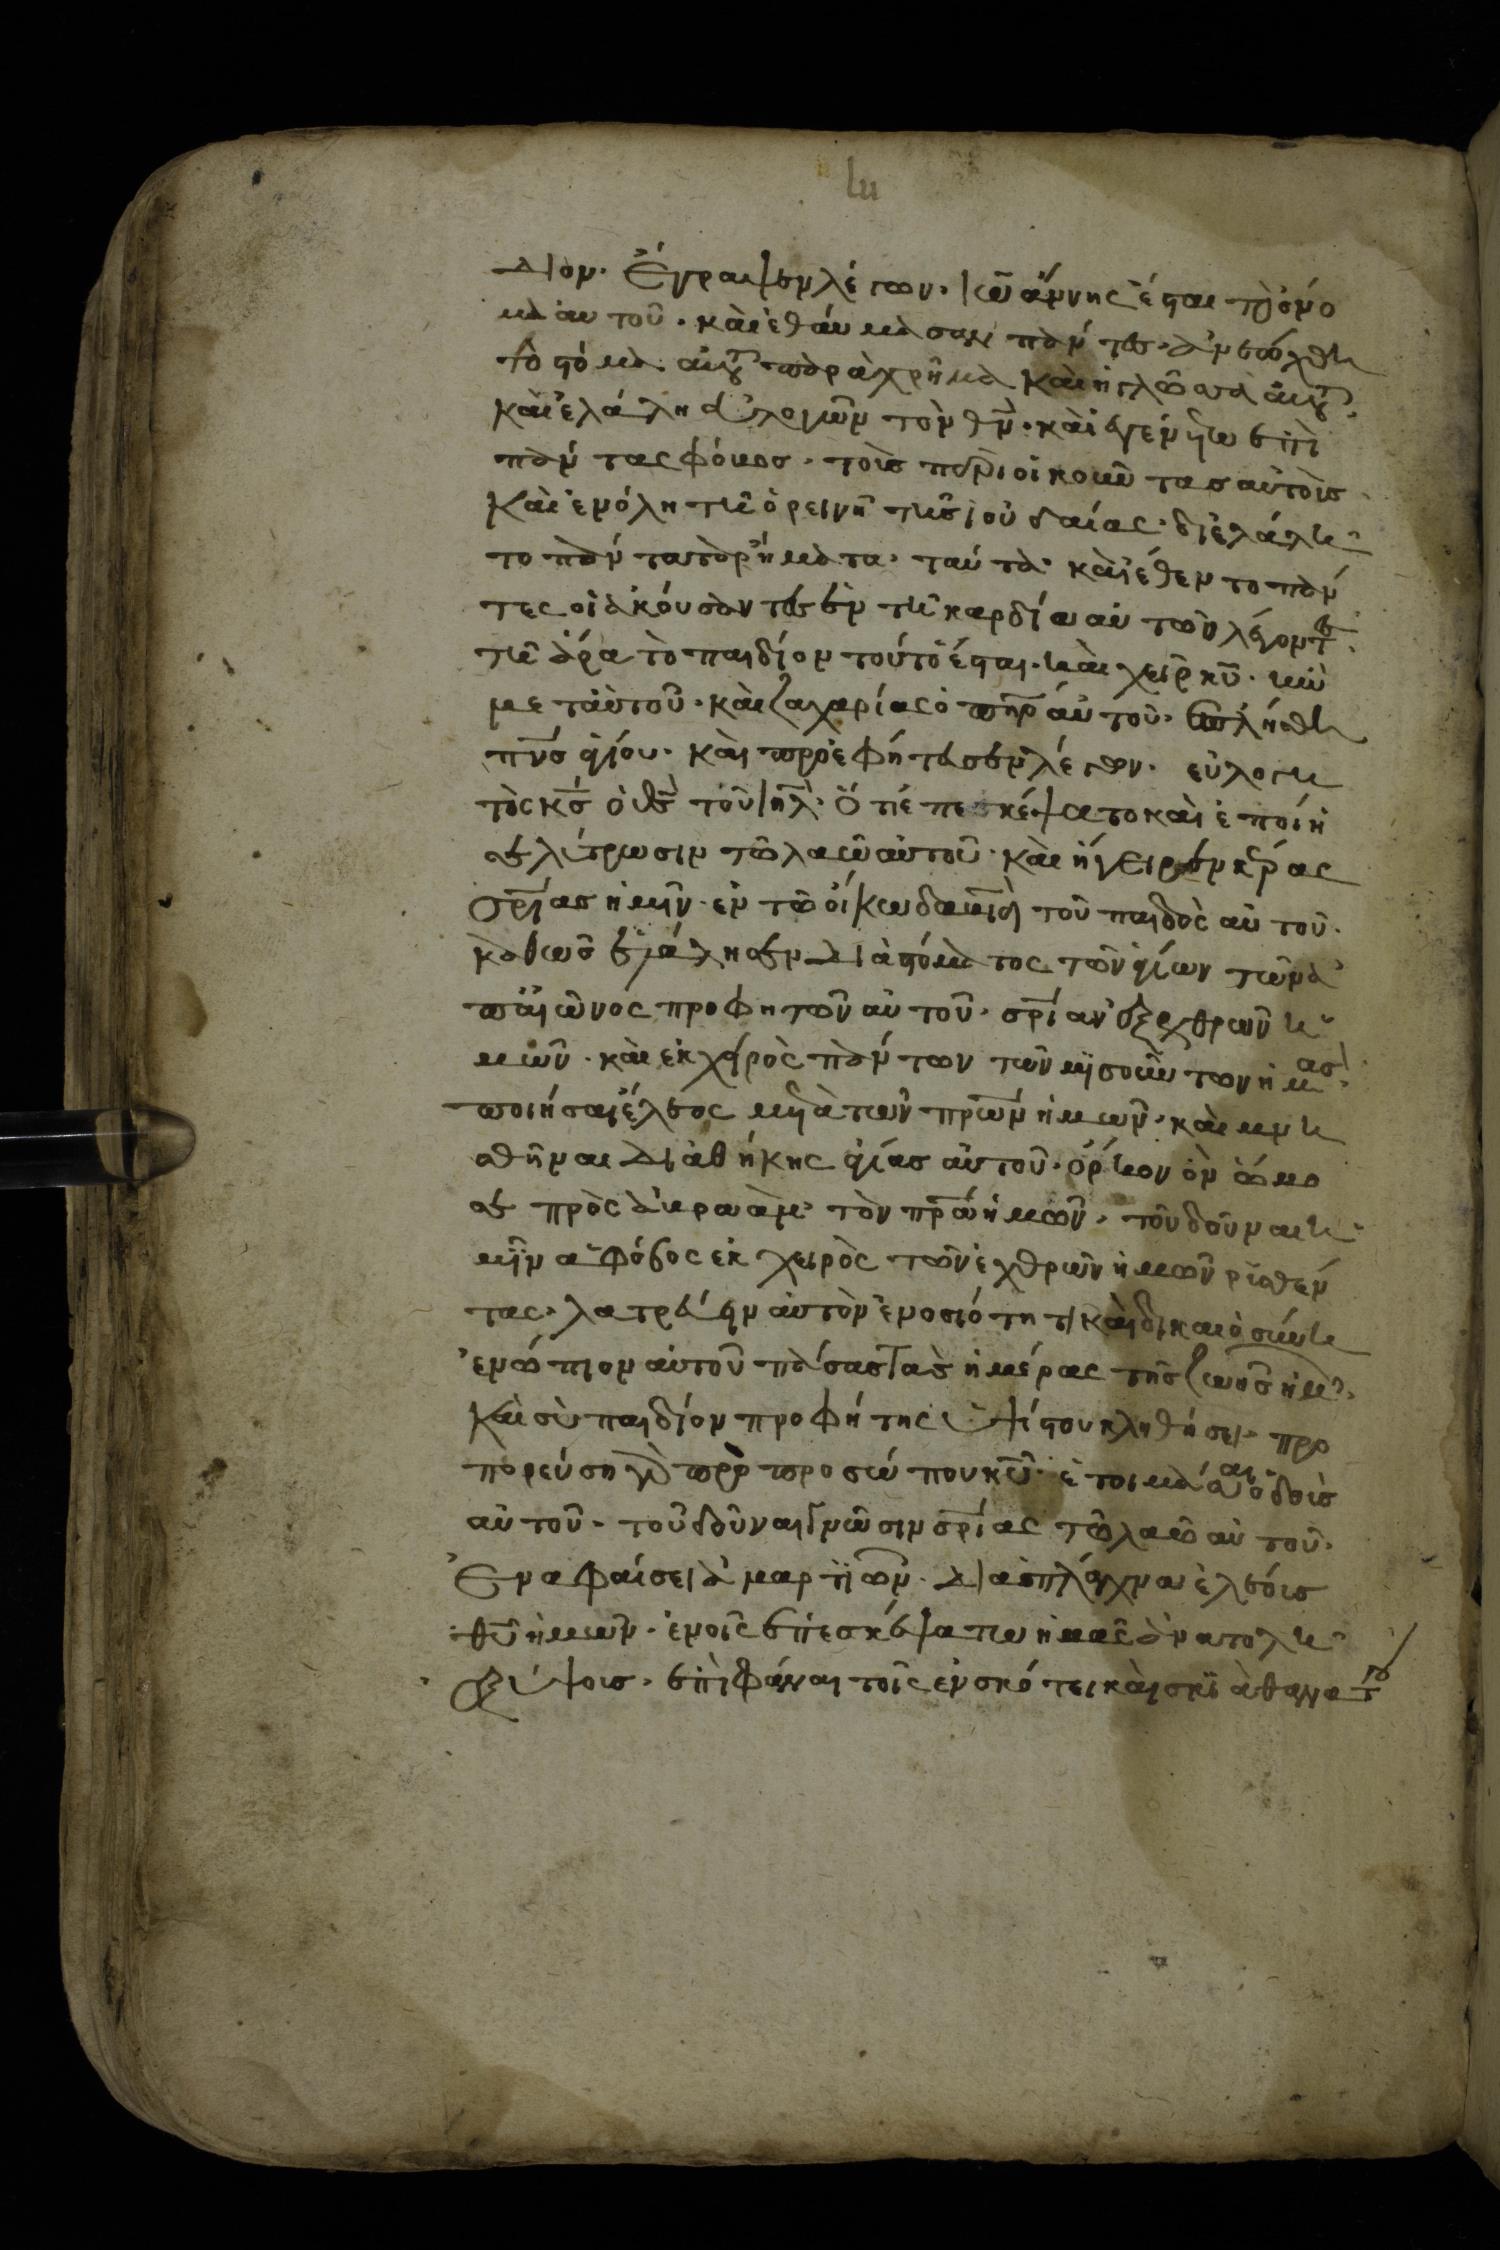 διον. Ἔγραψεν λέγων. Ἰωάννης ἔσται τὸ ὄνο
μα αυτοῦ. καὶ ἐθαύμασαν πάντες. ἀνεώχθη
τὸ στόμα αὐτοῦ παραχρῆμα καὶ ἡ γλῶσσα αὐτοῦ.
καὶ ἐλάλη εὐλογῶν τὸν θν. καὶ ἐγένετω ἐπὶ
πάντας φόβος. τοὶς περιοικοῦντας αὐτοὶς
Καὶ ἐνόλη τῆ ὀρεινῆ τῆς ἰουδαίας. διελάλη
το πάντα τὰ ῥήματα. ταύτα. καὶ έθεντο πάν
τες οἱ ἀκούσαντες ἐν τῆ καρδία αὐτῶν λέγοντες
τῆ ἄρα τὸ παιδίον τούτο έσται. καὶ χεὶρ κυ. ἦν
μετ αὐτοῦ. καὶ ζαχαρίας ὁ πηρ αὐτοῦ. ἐπλήσθη
πνς ἁγίου. καὶ προεφήτευσεν λέγων. εὐλογη
τὸς κς ὁ θς τοῦ ιηλ. ὅτι ἐπεσκέψατο καὶ ἐποίη
σε λύτρωσιν τῶ λαῶ αὐτοῦ. καὶ ἤγειρεν κέρας
σριας ἡμῖν. ἐν τῶ οἴκω δαυιδ τοῦ παιδὸς αὐτοῦ.
καθὼς ἐλάλησεν διὰ στόματος τῶν ἁγίων τῶν ἀ
π αἰῶνος προφητῶν αὐτοῦ. σριαν ἐξ ἐχθρῶν ἡ
μῶν. καὶ ἐκ χειρὸς πάντων τῶν μισοῦντων ἡμας.
ποιήσαι έλεος μετὰ τῶν πρων ἡμῶν. καὶ μνη
σθῆναι διαθήκης ἁγίας αὐτοῦ. ὅρκον ὃν ὤμο
σε πρὸς ἀβραὰμ τὸν πρα ἡμῶν. τοῦ δοῦναι ἡ
μῖν αφόβος ἐκ χειρὸς τῶν ἐχθρῶν ἡμῶν ρισθέν
τας. λατρεύειν αὐτὸν ἐν οσιότητι καὶ δικαιοσύνη
ἐνώπιον αὐτοῦ πάσας τὰς ἡμέρας τῆς ζωῆς ἡμῶν.
Καὶ σὺ παιδίον προφήτης ὑψίστου κληθήσει. προ
πορεύση γὰρ πρὸ προσώπου κυ. ἑτοιμάσαι ὁδοὶς
αὐτοῦ. τοῦ δοῦναι γνῶσιν σριας τῶ λαῶ αὐτοῦ.
Ἐν αφαίσει ἁμαρτιῶν. διὰ σπλάγχνα ἐλέοις
θυ ἡμῶν. ἐν οἷς ἐπεσκέψατω ἡμᾶς ἀνατολη
ἐξ ὕψοις. ἐπιφάναι τοῖς ἐν σκότει καὶ σκιὰ θανατ